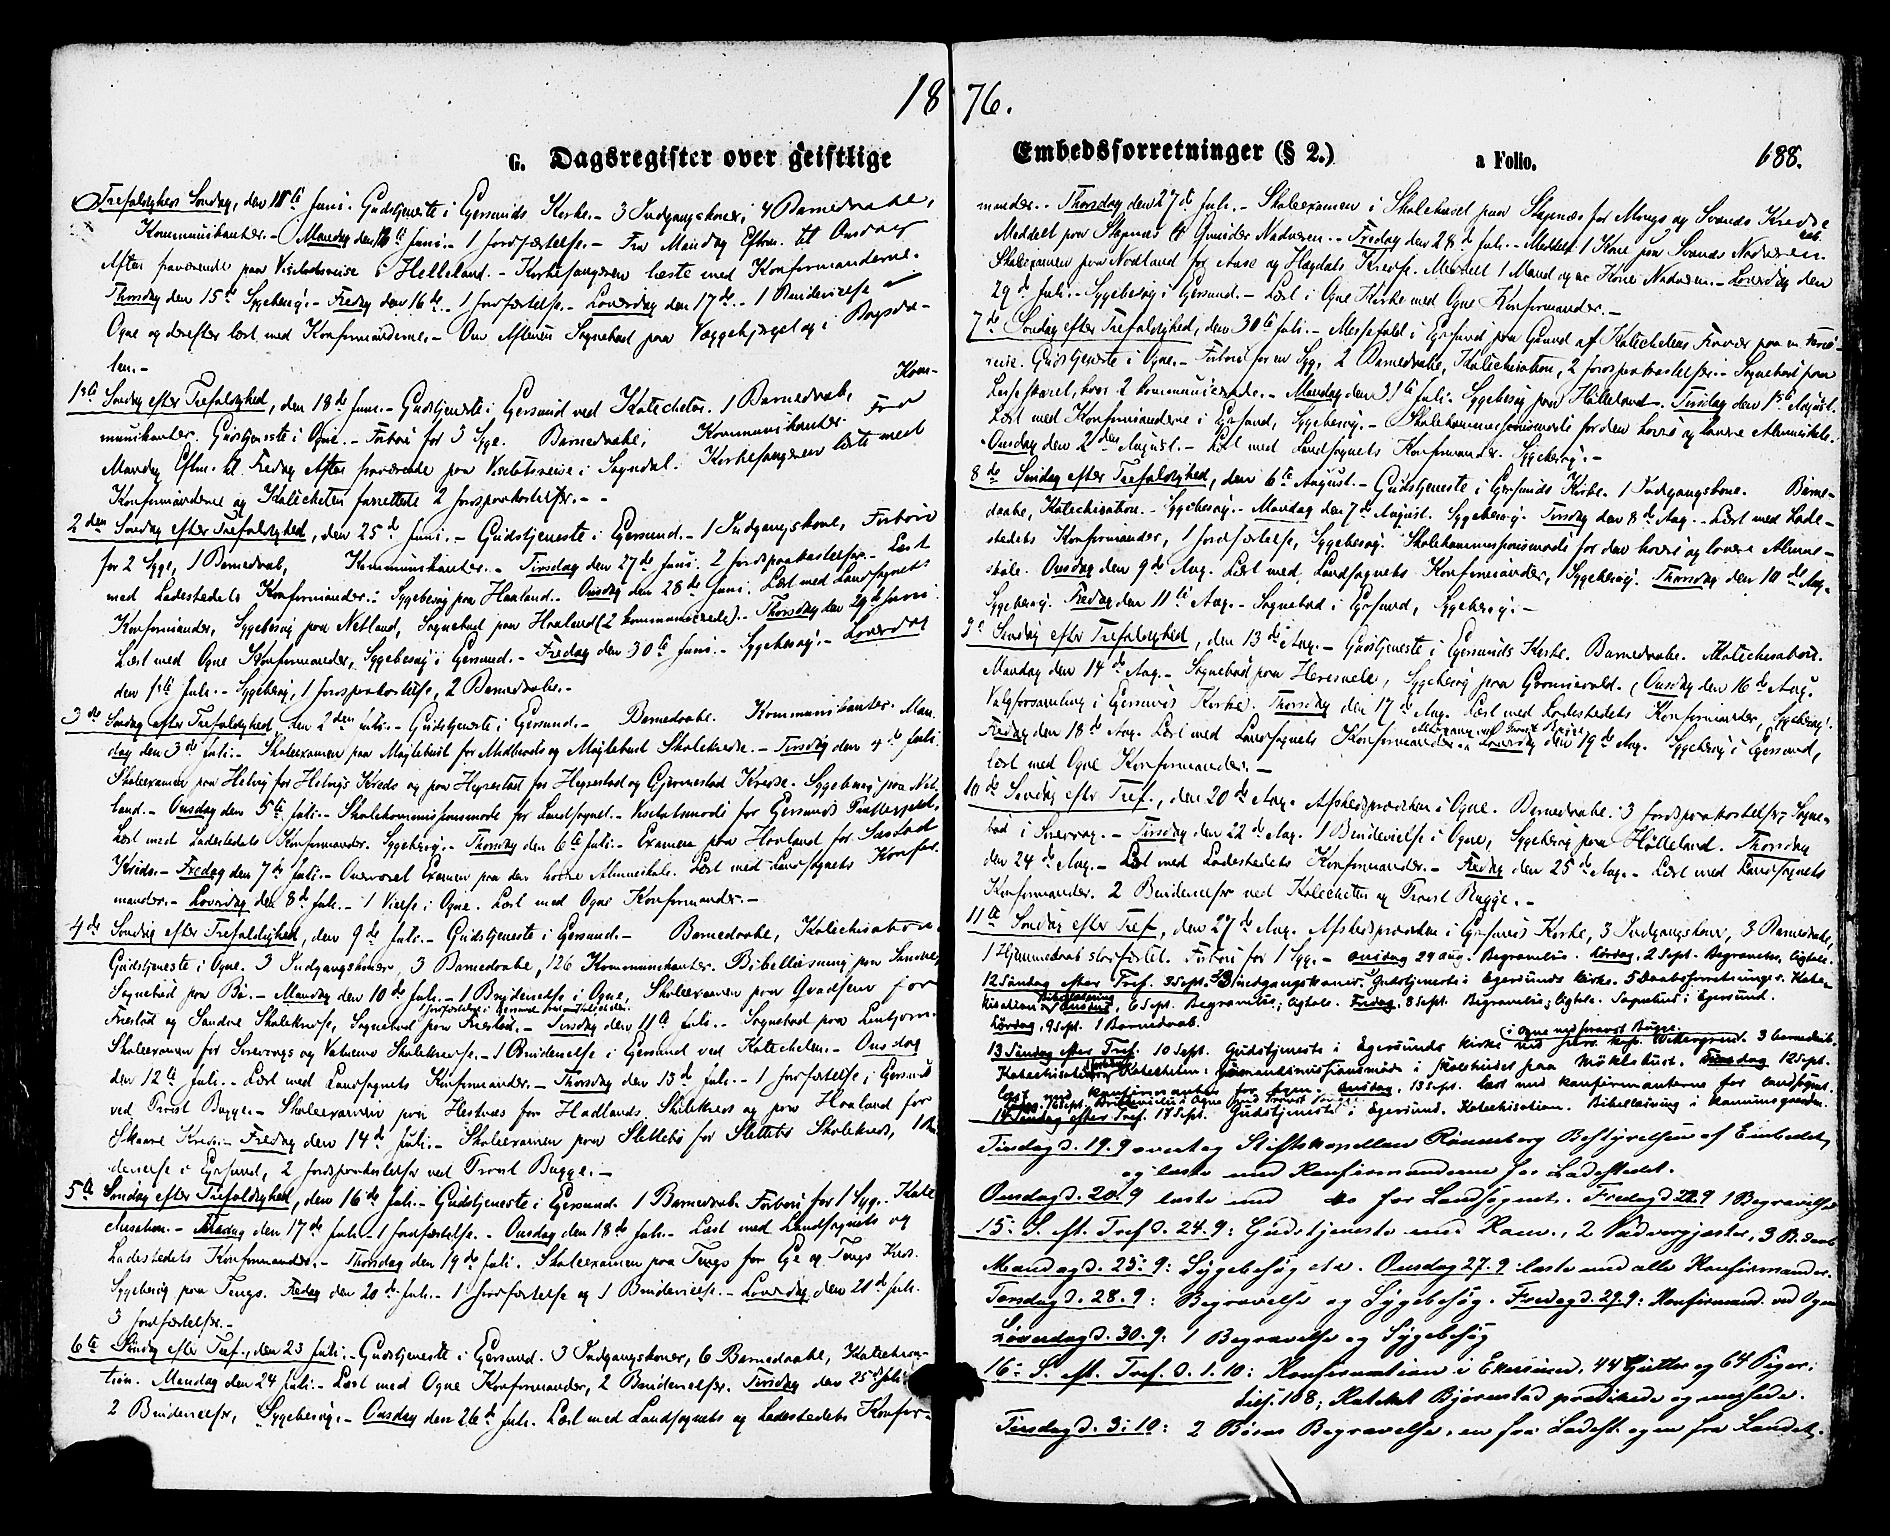 1876.
G. Dagsregister over geistlige Embedsforretninger (§ 2.) a Folio. 688.
Trefoldigheds Søndag, den 11te Juni. Gudstjeneste i Egersunds Kirke.- 3 Indgangskoner, 4 Barnedaabe,
Kommunikanter.- Mandag den Juni.- 1 Jordfæstelse.- Fra Mandag Eftm. til Onsdag
Aften fraværende paa Visitatsreise i Helleland.- Kirkesangeren læste med Konfirmanderne.
Thorsdag den 15de Sygebesøg.- Fredag den 16de.- 1 Jordfæstelse.- Løverdag den 17de.- 1 Brudevielse i
Ogne og derefter læst med Konfirmanderne.- Om Aftenen Sognebud paa Væggebjerget og i
len.-
1ste Søndag efter Trefoldighed, den 18de Juni.- Gudstjeneste i Egersund ved Katecheten. 1 Barnedaab, Kom-
munikanter. Gudstjeneste i Ogne.- Forbøn for 3 Syge. Barnedaabe, Kommunikanter. Fra
Mandag Eftm. til Fredag Aften fraværende paa Visitatsreise i Sogndal. Kirkesangeren læste med
Konfirmanderne og Katecheten forrettede 2 Jordspaakastelser.-
2den Søndag efter Trefoldighed, den 25de Juni.- Gudstjeneste i Egersund.- 1 Indgangskone, Forbøn
for 2 Syge, 1 Barnedaab, Kommunikanter.- Tirsdag den 27de Juni. 2 Jordspaakastelser.- Læst
med Ladestedets Konfirmander.- Sygebesøg paa Haaland.- Onsdag den 28de Juni. Læst med Landsognets
Konfirmander, Sygebesøg paa Netland, Sognebud paa Haaland (2 kommunicerede).- Thorsdag den 29de Juni.
Læst med Ogne Konfirmander, Sygebesøg i Egersund.- Fredag den 30te Juni.- Sygebesøg.- Løverdag
den 1ste Juli.- Sygebesøg, 1 Jordspaakastelse, 2 Barnedaabe.-
3de Søndag efter Trefoldighed, den 2den Juli.- Gudstjeneste i Egersund.- Barnedaabe. Kommunikanter. Man-
dag den 3de Juli.- Skoleexamen paa Møglebust for Midbrøds og Møglebust Skolekreds.- Tirsdag den 4de Juli
Skoleexamen paa Helvig for Helvigs Kreds og paa Hegrestad for Hegrestad og Gjermestad Kredse.- Sygebesøg paa Net-
land.- Onsdag den 5te Juli.- Skolekommissionsmøde for Landsognet.- Visitatsmøde for Egersunds Præstegjeld.
Læst med Ladestedets Konfirmander. Sygebesøg.- Thorsdag den 6te Juli.- Examen paa Hovland for
Kreds.- Fredag den 7de Juli.- Overværet Examen paa den høiere Almueskole. Læst med Landsognets Konfir-
mander.- Løverdag den 8de Juli.- 1 Vielse i Ogne. Læst med Ogne Konfirmander.-
4de Søndag efter Trefoldighed, den 9de Juli.- Gudstjeneste i Egersund.- Barnedaabe, Katechisation.
Gudstjeneste i Ogne. 3 Indgangskoner, 3 Barnedaabe, 126 Kommunikanter. Bibellæsning paa
Sognebud paa Bø.- Mandag den 10de Juli.- 1 Brudevielse i Ogne, Skoleexamen paa for
og Skolekredse, Sognebud paa - Tirsdag den 11te Juli.- Sognebud paa
Skoleexamen for Sirevaags og Vatnemo Skolekredse.- 1 Brudevielse i Egersund ved Katecheten.- Onsdag
den 12te Juli.- Læst med Landsognets Konfirmander.- Thorsdag den 13de Juli.- 1 Jordfæstelse i Egersund
ved Provst Bugge.- Skoleexamen paa Hestnæs for Hadlands Skolekreds og paa Hovland for
Skaare Kreds.- Fredag den 14de Juli.- Skoleexamen paa Slettebø for Slettebø Skolekreds, 1 Bru-
devielse i Egersund, 2 Jordspaakastelser ved Provst Bugge.-
5te Søndag efter Trefoldighed, den 16de Juli.- Gudstjeneste i Egersund. 1 Barnedaab. Forbøn for 1 Syg. Kate-
chisation.- den 17de Juli.- 1 Jordfæstelse.- Onsdag den 18de Juli.- Læst med Landsognets og
Ladestedets Konfirmander.- Thorsdag den 19de Juli. Skoleexamen paa Tengs for Eie og Tengs Kreds.
Sygebesøg paa Tengs. Fredag den 20de Juli.- 1 Jordfæstelse og 1 Brudevielse.- Løverdag den 21de Juli.
3 Jordfæstelser.-
6te Søndag efter Tref., den 23 Juli.- Gudstjeneste i Egersund. 3 Indgangskoner, 6 Barnedaabe, Katechisa-
tion. Mandag den 24 Juli.- Læst med Ogne Konfirmander, 2 Brudevielser. Tirsdag den 25de Juli
2 Brudevielser, Sygebesøg.- Onsdag den 26de Juli. Læst med Landsognets og Ladestedets Konfir-
mander.- Thorsdag den 27de Juli.- Skoleexamen i Skolehuset paa Stapnæs for Mongs og Svanæs Kredse
Meddelt paa Stapnæs 4 Nadveren.- Fredag den 28de Juli.- Meddelt 1 Kone paa Svanæs Nadveren.
Skoleexamen paa Nodland for Aase og Høgdals Kredse. Meddelt 1 Mand og en Kone Nadveren.- Løverdag den
29de Juli.- Sygebesøg i Egersund.- Læst i Ogne Kirke med Ogne Konfirmander.-
7de Søndag efter Trefoldighed, den 30te Juli.- Messefald i Egersund paa Grund af Katechetens Fravær paa en Ferie-
reise. Gudstjeneste i Ogne.- Forbøn for en Syg, 2 Barnedaabe, Katechisation, 2 Jordspaakastelser.- Sognebud paa
hvor 2 kommunicerede.- Mandag den 31te Juli. Sygebesøg paa Helleland.- Tirsdag den 1ste August.
Læst med Konfirmanderne i Egersund, Sygebesøg.- Skolekommissionsmøde for den høiere og lavere Almueskole.
Onsdag den 2den August.- Læst med Landsognets Konfirmander. Sygebesøg.-
8de Søndag efter Trefoldighed, den 6te August.- Gudstjeneste i Egersunds Kirke. 1 Indgangskone. Barne-
daabe, Katechisation.- Sygebesøg.- Mandag den 7de August. Sygebesøg. Tirsdag den 8de Aug.- Læst med Lade-
stedets Konfirmander, 1 Jordfæstelse, Sygebesøg. Skolekommissionsmøde for den høiere og lavere Almue-
skole. Onsdag den 9de Aug. Læst med Landsognets Konfirmander, Sygebesøg. Thorsdag den 10de Aug.
Sygebesøg. Fredag den 11te Aug.- Sognebud i Egersund, Sygebesøg.-
9de Søndag efter Trefoldighed, den 13de Aug.- Gudstjeneste i Egersunds Kirke. Barnedaabe. Katechisation.
Mandag den 14de Aug.- Sognebud paa Sygebesøg paa (Onsdag den 16de Aug.
Valgforsamling i Egersunds Kirke). Thorsdag den 17de Aug. Læst med Ladestedets Konfirmander, Sygebesøg.
Fredag den 18de Aug. Læst med Landsognets Konfirmander.- Løverdag den 19de Aug. Sygebesøg i Egersund,
læst med Ogne Konfirmander.-
10de Søndag efter Tref., den 20de Aug. Afskedspræken i Ogne. Barnedaabe. 3 Jordspaakastelser. Sogne-
bud i Sirevaag.- Tirsdag den 22de Aug. 1 Brudevielse i Ogne, Sygebesøg paa Helleland. Thorsdag
den 24de Aug.- Læst med Ladestedets Konfirmander.- Fredag den 25de Aug.- Læst med Landsognets
Konfirmander. 2 Brudevielser ved Katecheten og Provst Bugge.-
11te Søndag efter Tref., den 27de Aug. Afskedspræken i Egersunds Kirke, 3 Indgangskoner, 3 Barnedaabe,
1 Hjemmedaab stadfæstet. Forbøn for 1 Syg.- Onsdag 29 Aug. Begravelse. Lördag, 2 Sept. Begravelse, ligtale.
12 Söndag efter Tref. 3 Sept. 3 Indgangskoner, Gudstjeneste i Egersunds Kirke. 5 Daabsforretninger. Kate-
kisation Bibellæsning Onsdag, 6 Sept. Begravelse; ligtale. Fredag, 8 Sept. Begravelse; ligtale. Sognebud i Egersund.
Lördag, 9 Sept. 1 Barnedaab.
13 Söndag efter Tref. 10 Sept. Gudstjeneste i Egersunds Kirke ved i Ogne ved Provst Bugge. 3 barnedaab.
Katechisation Katecheten. i skolehuset paa Mökleböst. 12 Sept.
Læst med konfirmanter for byen. Onsdag, 13 Sept. Læst med konfirmanterne for landsognet.
14 Söndag efter Tref. 17 Sept. Gudstjeneste i Egersund. Katechisation. Bibellæsning i
Tirsdag d. 19. 9 overtog Stiftskapellan Rönneberg Bestyrelsen af Embedet,
og læste med Konfirmanderne for Ladestedet.
Onsdag d. 20. 9 læste med do for Landsognet. Fredag d. 22. 9 1 Begravelse
15: S. eft. Tref. d. 24. 9: Gudstjeneste med Kom., 2 Nadvergjæster, 3 B. Daab
Mandag d. 25. 9: Sygebesög etc. Onsdag 27. 9 læste med alle Konfirmander.
Torsdag d. 28. 9: Begravelse og Sygebesög. Fredag d. 29. 9: Konfirmand. ved Ogne
Löverdag d. 30. 9: 1 Begravelse og Sygebesög
16: S. eft. Tref. d. 1. 10: Konfirmation i Ekersund, 44 Gutter og 64 Piger;
tils. 108; Kateket Bjørnstad prædikede og messede.
Tirsdag d. 3. 10: 2 Begravelse, en fra Ladest. og en fra Landet.